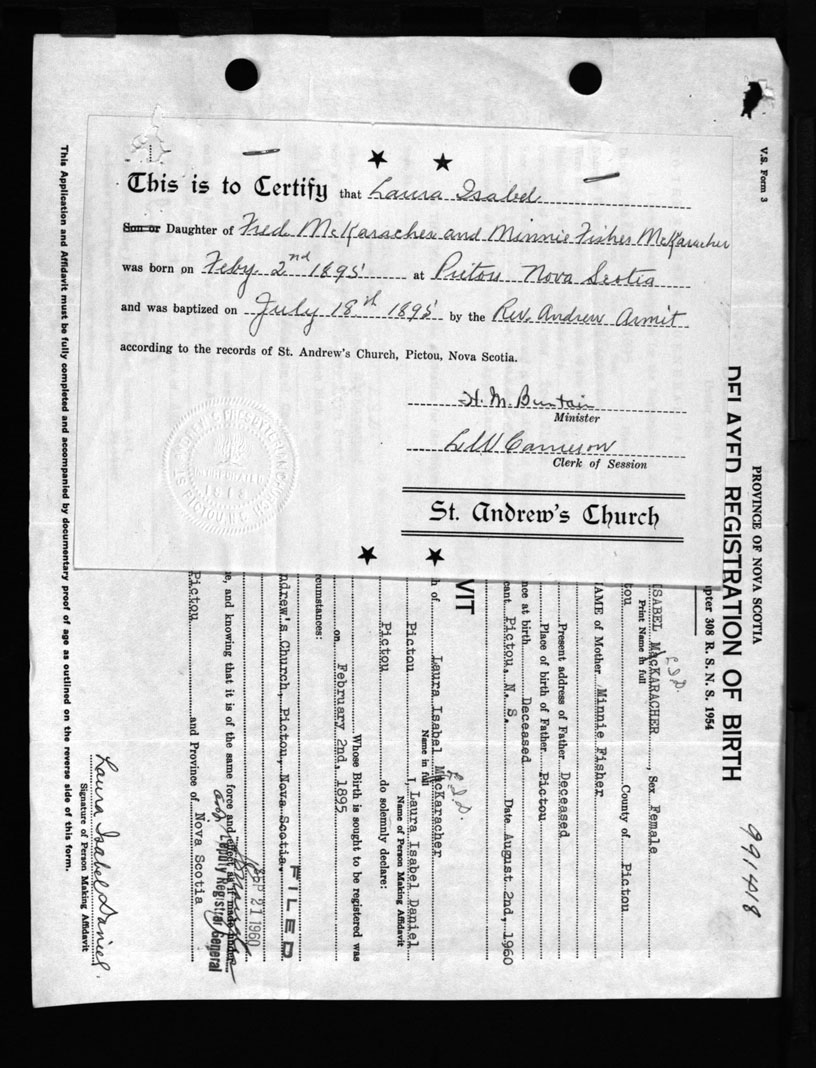 This is to Certify that Laura Isabel
Son or Daughter of Fred McKaracher and Minnie Fisher McKaracher
was born on Feby. 2nd 1895 at Pictou Nova Scotia
and was baptized on July 18th 1895 by the Rev. Andrew Armit
according to the records of St. Andrew's Church, Pictou, Nova Scotia.
H. M. Buntain
Minister
L W Cameron
Clerk of Session
St. Andrew's Church
V.S. Form 3
PROVINCE OF NOVA SCOTIA
DELAYED REGISTRATION OF BIRTH
pter 308 R. S. N. S. 1954
991418
L.I.D.
ISABEL MacKARACHER, Sex Female
Print Name in full
tou County of Pictou
NAME of Mother Minnie Fisher
Present address of Father Deceased
Place of birth of Father Pictou
nce at birth Deceased
cant Pictou, N. S. Date August 2nd, 1960
VIT
L.I.D.
h of Laura Isabel MacKaracher
Name in full
Pictou I, Laura Isabel Daniel
Name of Person Making Affidavit
Pictou do solemnly declare:
Whose Birth is sought to be registered was
on February 2nd, 1895
rcumstances:
FILED
ndrew's Church, Pictou, Nova Scotia.
21 1960
e, and knowing that it is of the same force and effect, as if made under
Deputy Registrar General
Pictou and Province of Nova Scotia
Laura Isabel Daniel.
Signature of Person Making Affidavit
This Application and Affidavit must be fully completed and accompanied by documentary proof of age as outlined on the reverse side of this form.